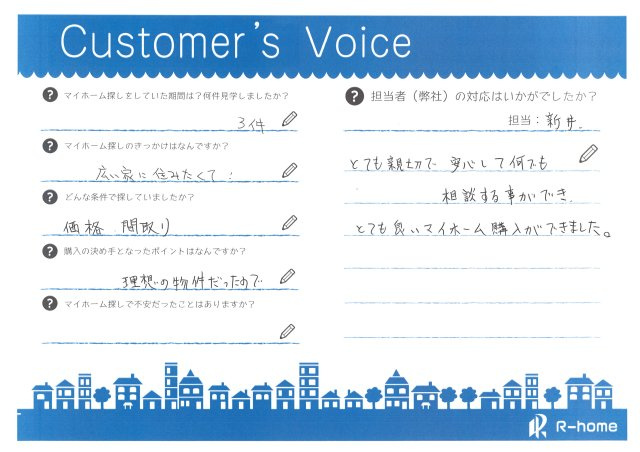 Customer's Voice
マイホーム探しをしていた期間は?何件見学しましたか?
3件
マイホーム探しのきっかけはなんですか?
広い家に住みたくて:
どんな条件で探していましたか?
価格 間取り
購入の決め手となったポイントはなんですか?
理想の物件だったので
マイホーム探しで不安だったことはありますか?
担当者(弊社)の対応はいかがでしたか?
担当:新井.
とても親切で 安心して何でも
相談する事ができ.
とても良いマイホーム購入ができました。
R-home